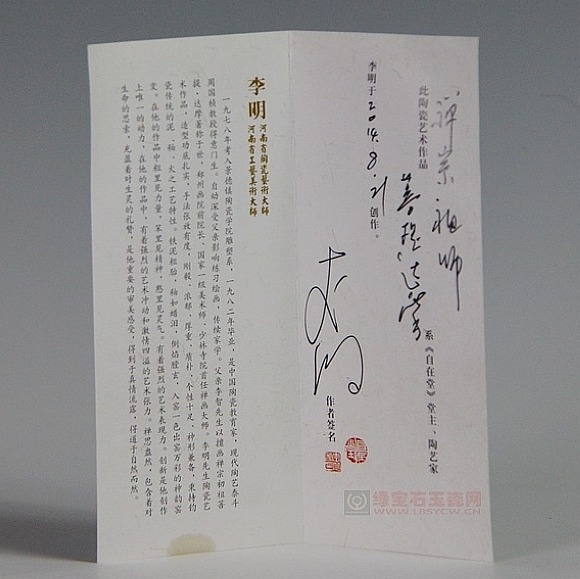 此陶瓷艺术作品
禅宗祖师
系《自在堂》堂主、陶艺家
李明于2014.8.21创作。
作者签名
李明
河南省陶瓷艺术大师
河南省工艺美术大师
一九七八年考入景德镇陶瓷学院雕塑系，一九八二年毕业，是中国陶瓷教育家，现代陶艺泰斗
周国桢教授得意门生。自幼深受父亲影响练习绘画，传续家学。父亲李智先生以描画禅宗初祖菩
提·达摩著称于世，郑州画院前院长、国家一级美术师、少林寺院首任禅画大师。李明先生陶瓷艺
术作品，造型功底扎实，手法张放有度，刚毅、浓郁、厚重、质朴、个性十足，神形兼备，秉持钧
瓷传统的泥、釉、火之工艺特性。铁泥粗胎，釉如蜡泪，倒焰膛玄，入窑一色出窑万彩的神韵窑
变。在他的作品中粗里见力量，笨里见精神，憨里见灵气。有着强烈的艺术表现力。创新是他创作
上唯一的动力，在他的作品中，有着强烈的艺术冲动和激情四溢的艺术张力。禅思盎然，包含着对
生命的思索，充盈着对生灵的礼赞，是他重要的审美感受，得到于真情流露，得道于自然而然。
绿宝石玉瓷网
WWW.LBSYCW.CN